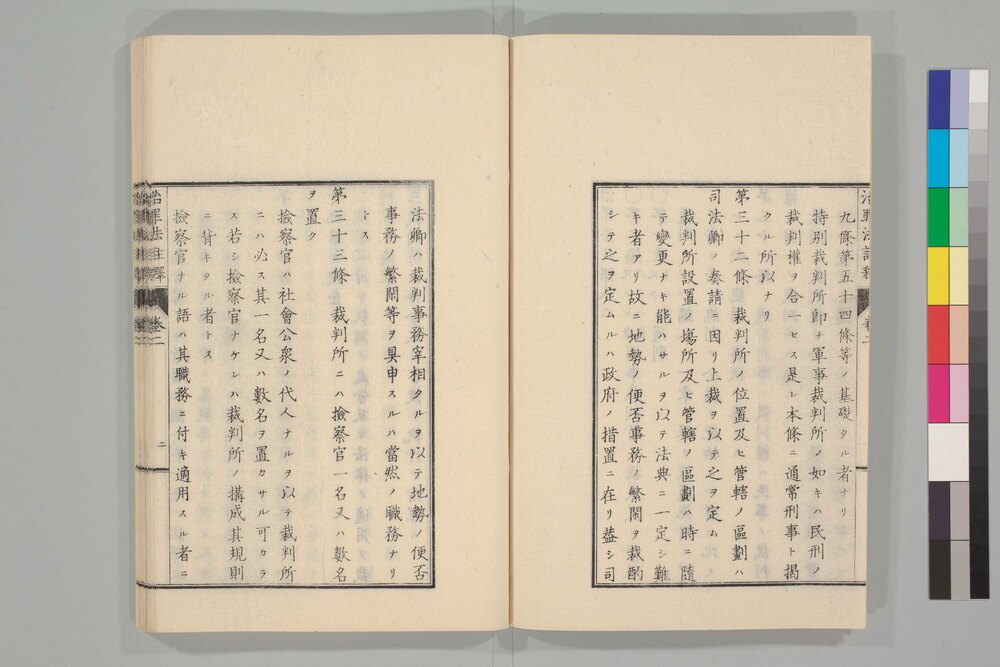 九條第五十四條等ノ基礎タル者ナリ
特別裁判所即チ軍事裁判所ノ如キハ民刑ノ
裁判權ヲ合一セス是レ本條ニ通常刑事ト揭
クル所以ナリ
第三十二條 裁判所ノ位置及ヒ管轄ノ區劃ハ
司法卿ノ奏請ニ因リ上裁ヲ以テ之ヲ定ム
裁判所設置ノ塲所及ヒ管轄ノ區劃ハ時ニ隨
テ變更ナキ能ハサルヲ以テ法典ニ一定シ難
キ者アリ故ニ地勢ノ便否事務ノ繁閑ヲ裁酌
シテ之ヲ定ムルハ政府ノ措置ニ在リ葢シ司
法卿ハ裁判事務宰相タルヲ以テ地勢ノ便否
事務ノ繁閑等ヲ具申スルハ當然ノ職務ナリ
トス
第三十三條 裁判所ニハ撿察官一名又ハ數名
ヲ置ク
撿察官ハ社會公衆ノ代人ナルヲ以テ裁判所
ニハ必ス其一名又ハ數名ヲ置カサル可カラ
ス若シ撿察官ナケレハ裁判所ノ搆成其規則
ニ背キタル者トス
撿察官ナル語ハ其職務ニ付キ適用スル者ニ
治罪法註釋 卷二 二